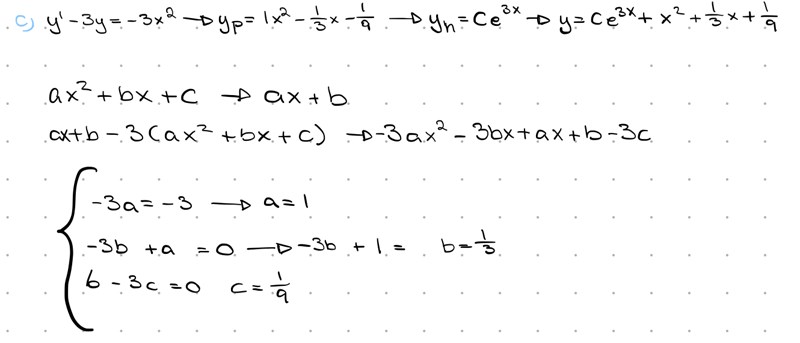 c) y' - 3y = -3x² → yp = 1x² - 1/3x - 1/9 → yh = Ce³ˣ → y = Ce³ˣ + x² + 1/3x + 1/9
ax² + bx + c → ax + b
ax + b - 3(ax² + bx + c) → -3ax² - 3bx + ax + b - 3c
-3a = -3 → a = 1
-3b + a = 0 → -3b + 1 = b = 1/3
b - 3c = 0 c = 1/9